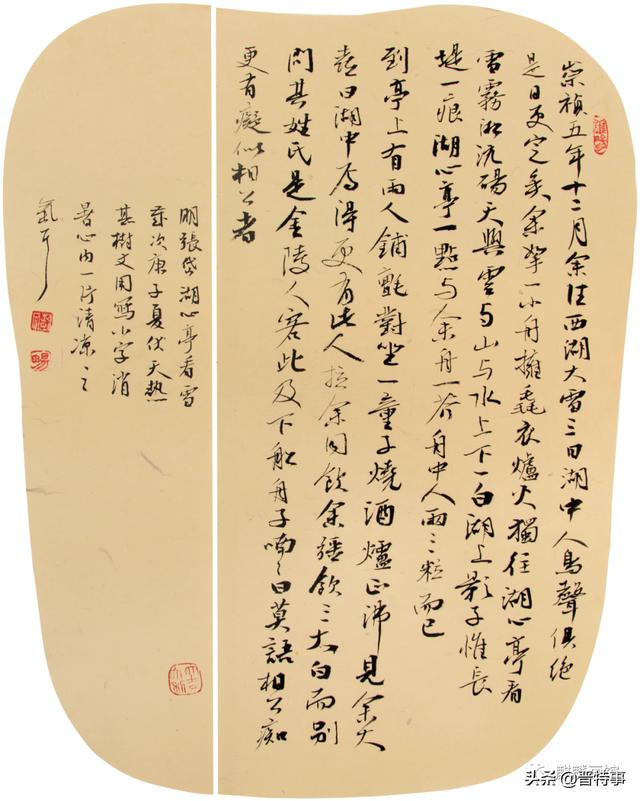 崇禎五年十二月余住西湖大雪三日湖中人鳥聲俱絕
是日更定矣余拏一小舟擁毳衣爐火獨往湖心亭看
雪霧凇沆碭天與雲与山与水上下一白湖上影子惟長
堤一痕湖心亭一點与余舟一芥舟中人兩三粒而已
到亭上有兩人鋪氈對坐一童子燒酒爐正沸見余大
喜曰湖中焉得更有此人拉余同飲余強飲三大白而別
問其姓氏是金陵人客此及下船舟子喃〻曰莫語相公痴
更有癡似相公者
明張岱湖心亭看雪
歲次庚子夏伏天熱
甚樹文用寫小字消
暑心内一片清凉之
氣耳
头条 @普特事